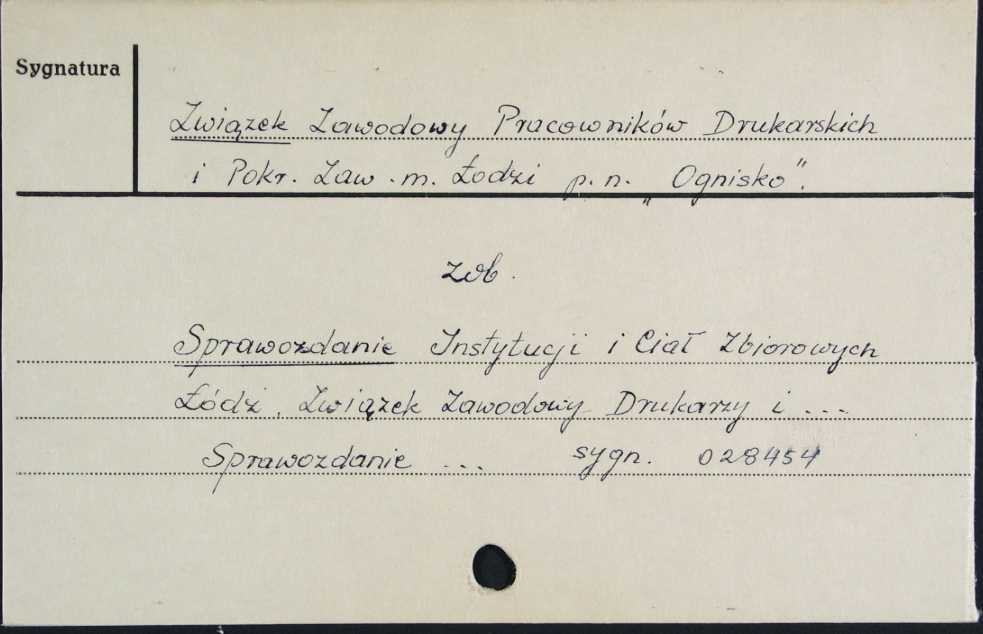 Sygnatura
Związek Zawodowy Pracowników Drukarskich
i Pokr. Zaw. m. Łodzi p.n. „Ognisko”.
zob.
Sprawozdanie Instytucji i Ciał Zbiorowych
Łódź. Związek Zawodowy Drukarzy i ...
Sprawozdanie ... sygn. 028454